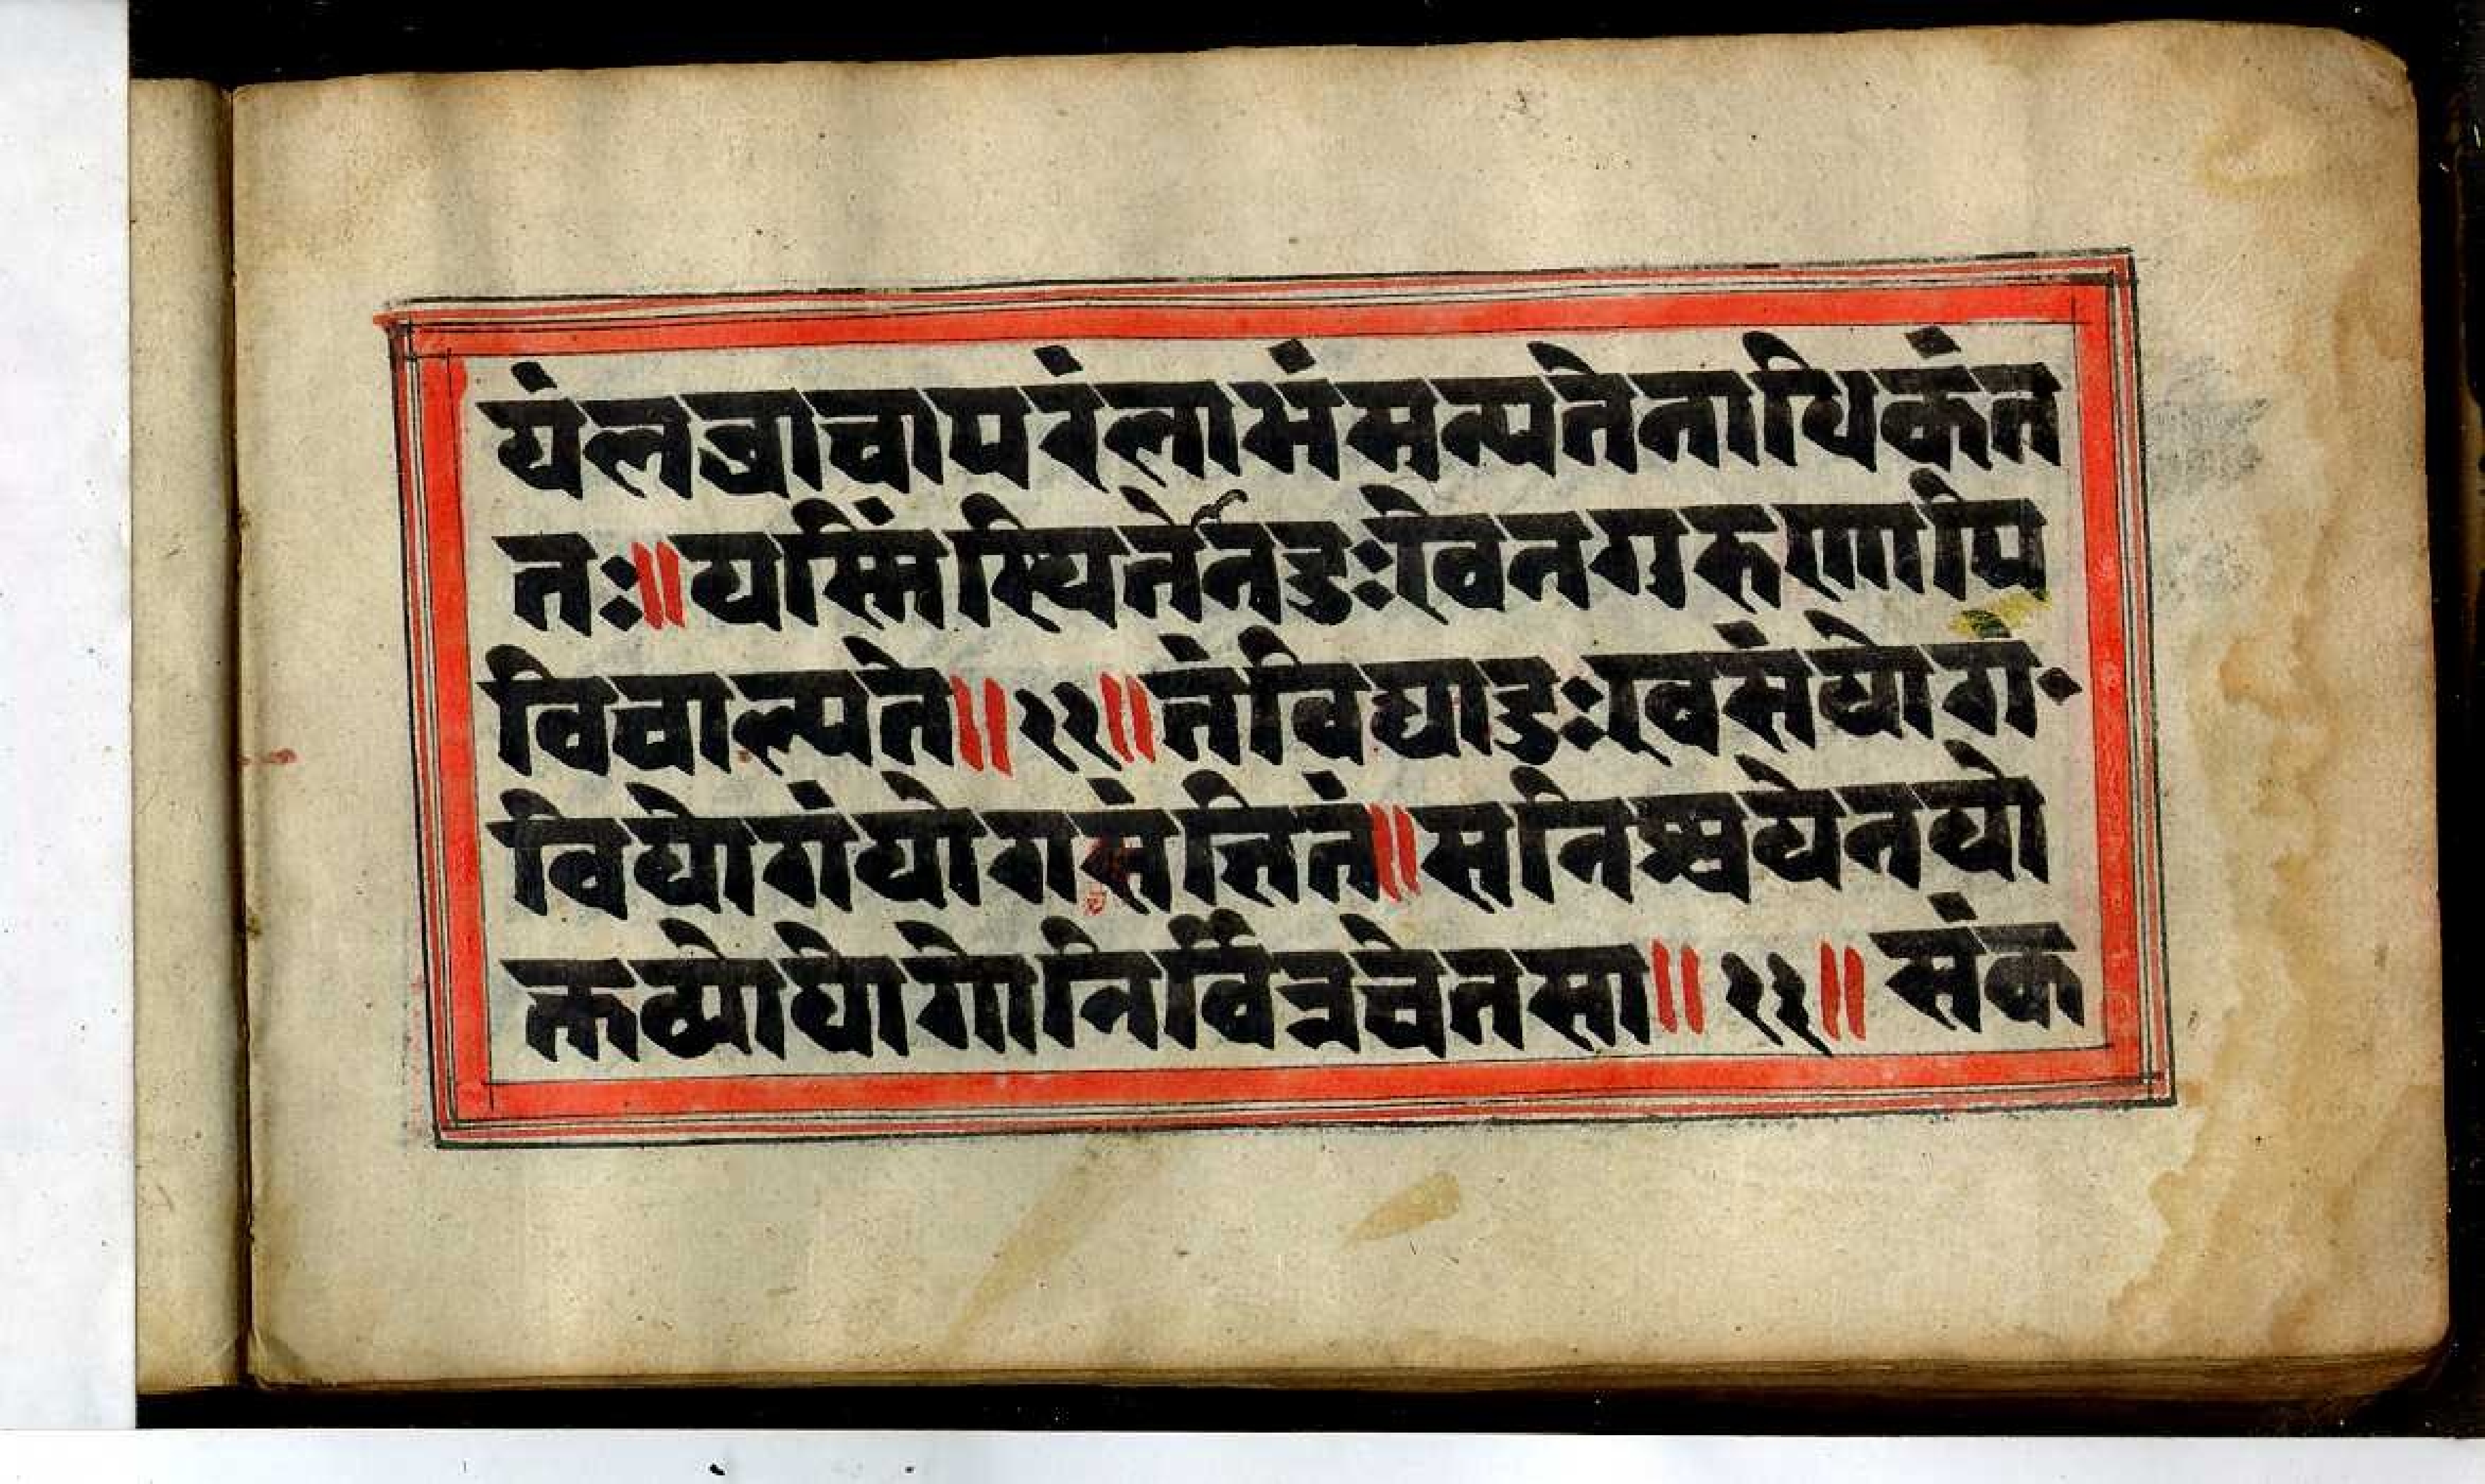 यंलब्ध्वाचापरंलाभंमन्यतेनाधिकंत
तः॥यस्मिंस्थितोनदुःखेनगुरुणापि
विचाल्यते॥२२॥तंविद्यादुःखसंयोग॰
वियोगंयोगसंज्ञितं॥सनिश्चयेनयो
क्तव्योयोगोनिर्विन्नचेतसा॥२३॥संक